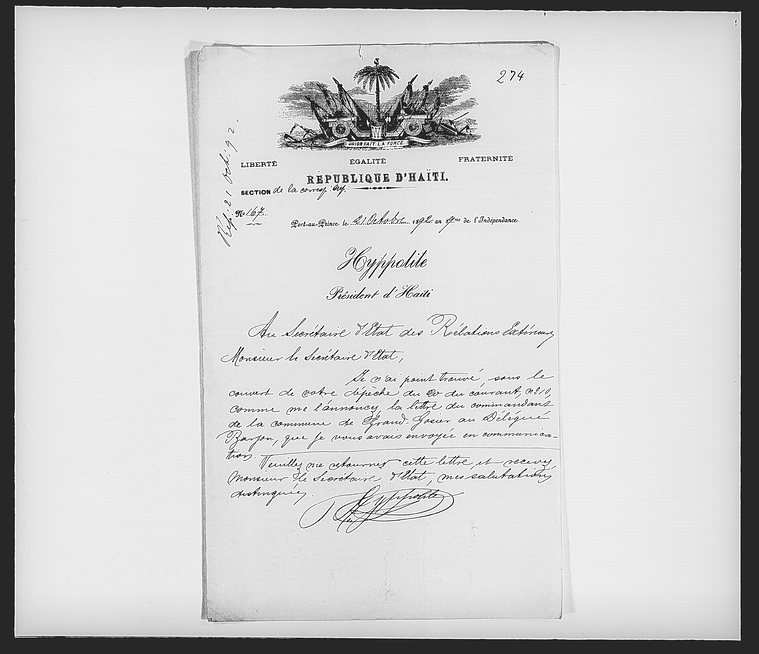 274
Rép. 21 Oct. 92.
L'UNION FAIT LA FORCE
LIBERTÉ ÉGALITÉ FRATERNITÉ
RÉPUBLIQUE D'HAÏTI.
SECTION de la corresp.
No 167
Port-au-Prince le 21 Octobre 1892 an 89me de l'Indépendance
Hyppolite
Président d'Haïti
Au Secrétaire d'Etat des Rélations Extérieures
Monsieur le Secrétaire d'Etat,
Je n'ai point trouvé, sous le
couvert de votre dépêche du 20 du courant, No 210,
comme me l'annoncez, la lettre du commandant
de la commune de Grand-Gosier au Délégué
que je vous avais envoyée en communica-
tion.
Veuillez me retourner cette lettre, et recevez
Monsieur le Secrétaire d'Etat, mes salutations
distinguées.
Hyppolite